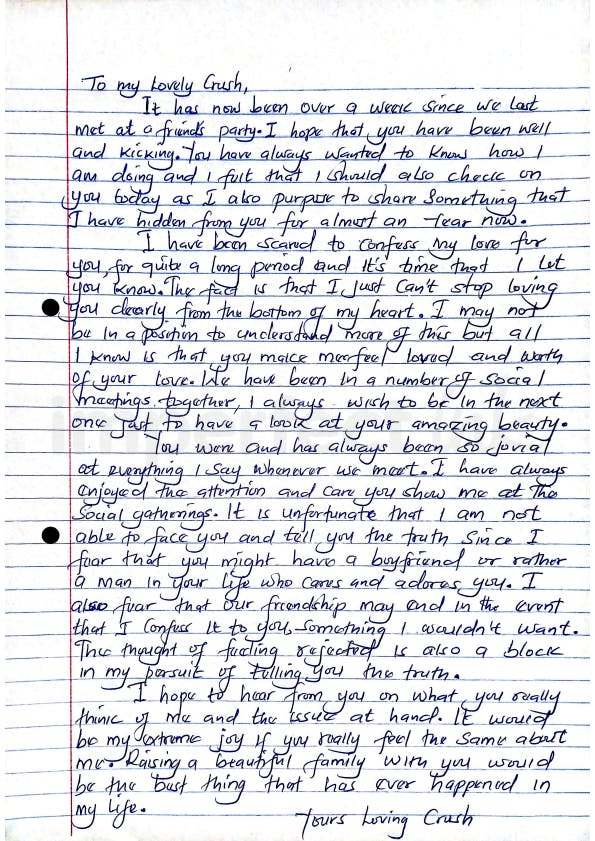 To my Lovely Crush,
It has now been over a week since we last
met at a friends party. I hope that you have been well
and kicking. You have always wanted to know how I
am doing and I felt that I should also check on
you today as I also purpose to share something that
I have hidden from you for almost an Year now.
I have been scared to confess my love for
you, for quite a long period and It's time that I let
you know. The fact is that I just Can't stop loving
you dearly from the bottom of my heart. I may not
be in a position to understand more of this but all
I know is that you make me feel loved and worth
of your love. We have been in a number of social
meetings together, I always wish to be in the next
one just to have a look at your amazing beauty.
You were and has always been so jovial
at everything I say whenever we meet. I have always
enjoyed the attention and care you show me at the
social gatherings. It is unfortunate that I am not
able to face you and tell you the truth since I
fear that you might have a boyfriend or rather
a man in your life who cares and adores you. I
also fear that our friendship may end in the event
that I confess it to you, something I wouldn't want.
The thought of feeling rejected is also a block
in my persuit of telling you the truth.
I hope to hear from you on what you really
think of me and the issue at hand. It would
be my extreme joy if you really feel the same about
me. Raising a beautiful family with you would
be the best thing that has ever happened in
my life.
Yours Loving Crush